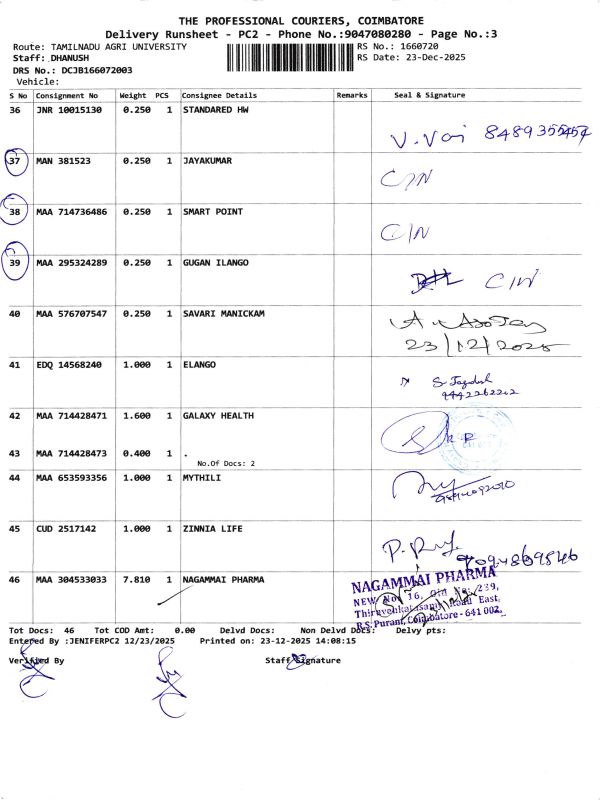 THE PROFESSIONAL COURIERS, COIMBATORE
Delivery Runsheet - PC2 - Phone No.:9047080280 - Page No.:3
Route: TAMILNADU AGRI UNIVERSITY RS No.: 1660720
Staff: DHANUSH RS Date: 23-Dec-2025
DRS No.: DCJB166072003
Vehicle:
S No Consignment No Weight PCS Consignee Details Remarks Seal & Signature
36 JNR 10015130 0.250 1 STANDARED HW
37 MAN 381523 0.250 1 JAYAKUMAR
C/N
38 MAA 714736486 0.250 1 SMART POINT
C/N
39 MAA 295324289 0.250 1 GUGAN ILANGO
C/N
40 MAA 576707547 0.250 1 SAVARI MANICKAM
23/12/2025
41 EDQ 14568240 1.000 1 ELANGO
42 MAA 714428471 1.600 1 GALAXY HEALTH
43 MAA 714428473 0.400 1 .
No.Of Docs: 2
44 MAA 653593356 1.000 1 MYTHILI
45 CUD 2517142 1.000 1 ZINNIA LIFE
46 MAA 304533033 7.810 1 NAGAMMAI PHARMA
NAGAMMAI PHARMA
NEW No. 16, Old No. 239,
Road East,
R.S. Puram, Coimbatore - 641 002.
Tot Docs: 46 Tot COD Amt: 0.00 Delvd Docs: Non Delvd Docs: Delvy pts:
Entered By :JENIFERPC2 12/23/2025 Printed on: 23-12-2025 14:08:15
Verified By Staff Signature